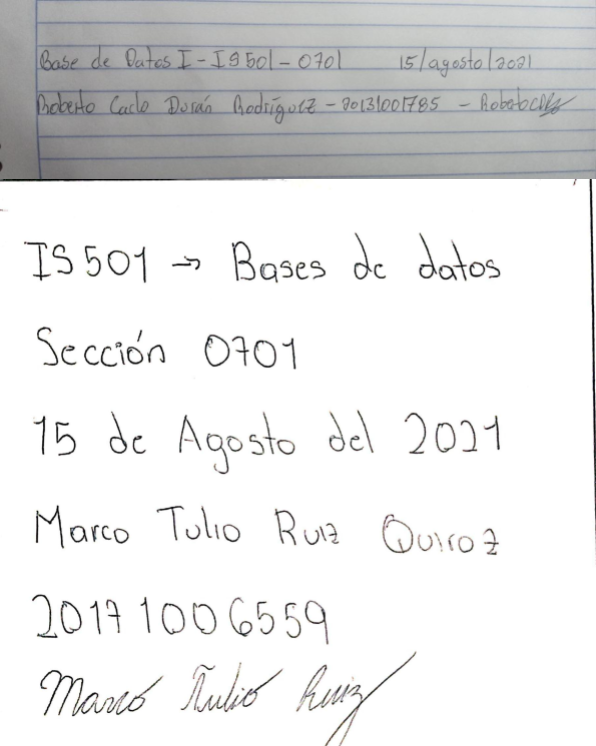 Base de Datos I - IS501 - 0701 15/agosto/2021
Roberto Carlo Durán Rodríguez - 20131001785 -
IS501 → Bases de datos
Sección 0701
15 de Agosto del 2021
Marco Tulio Ruiz Quiroz
20171006559
Marco Tulio Ruiz